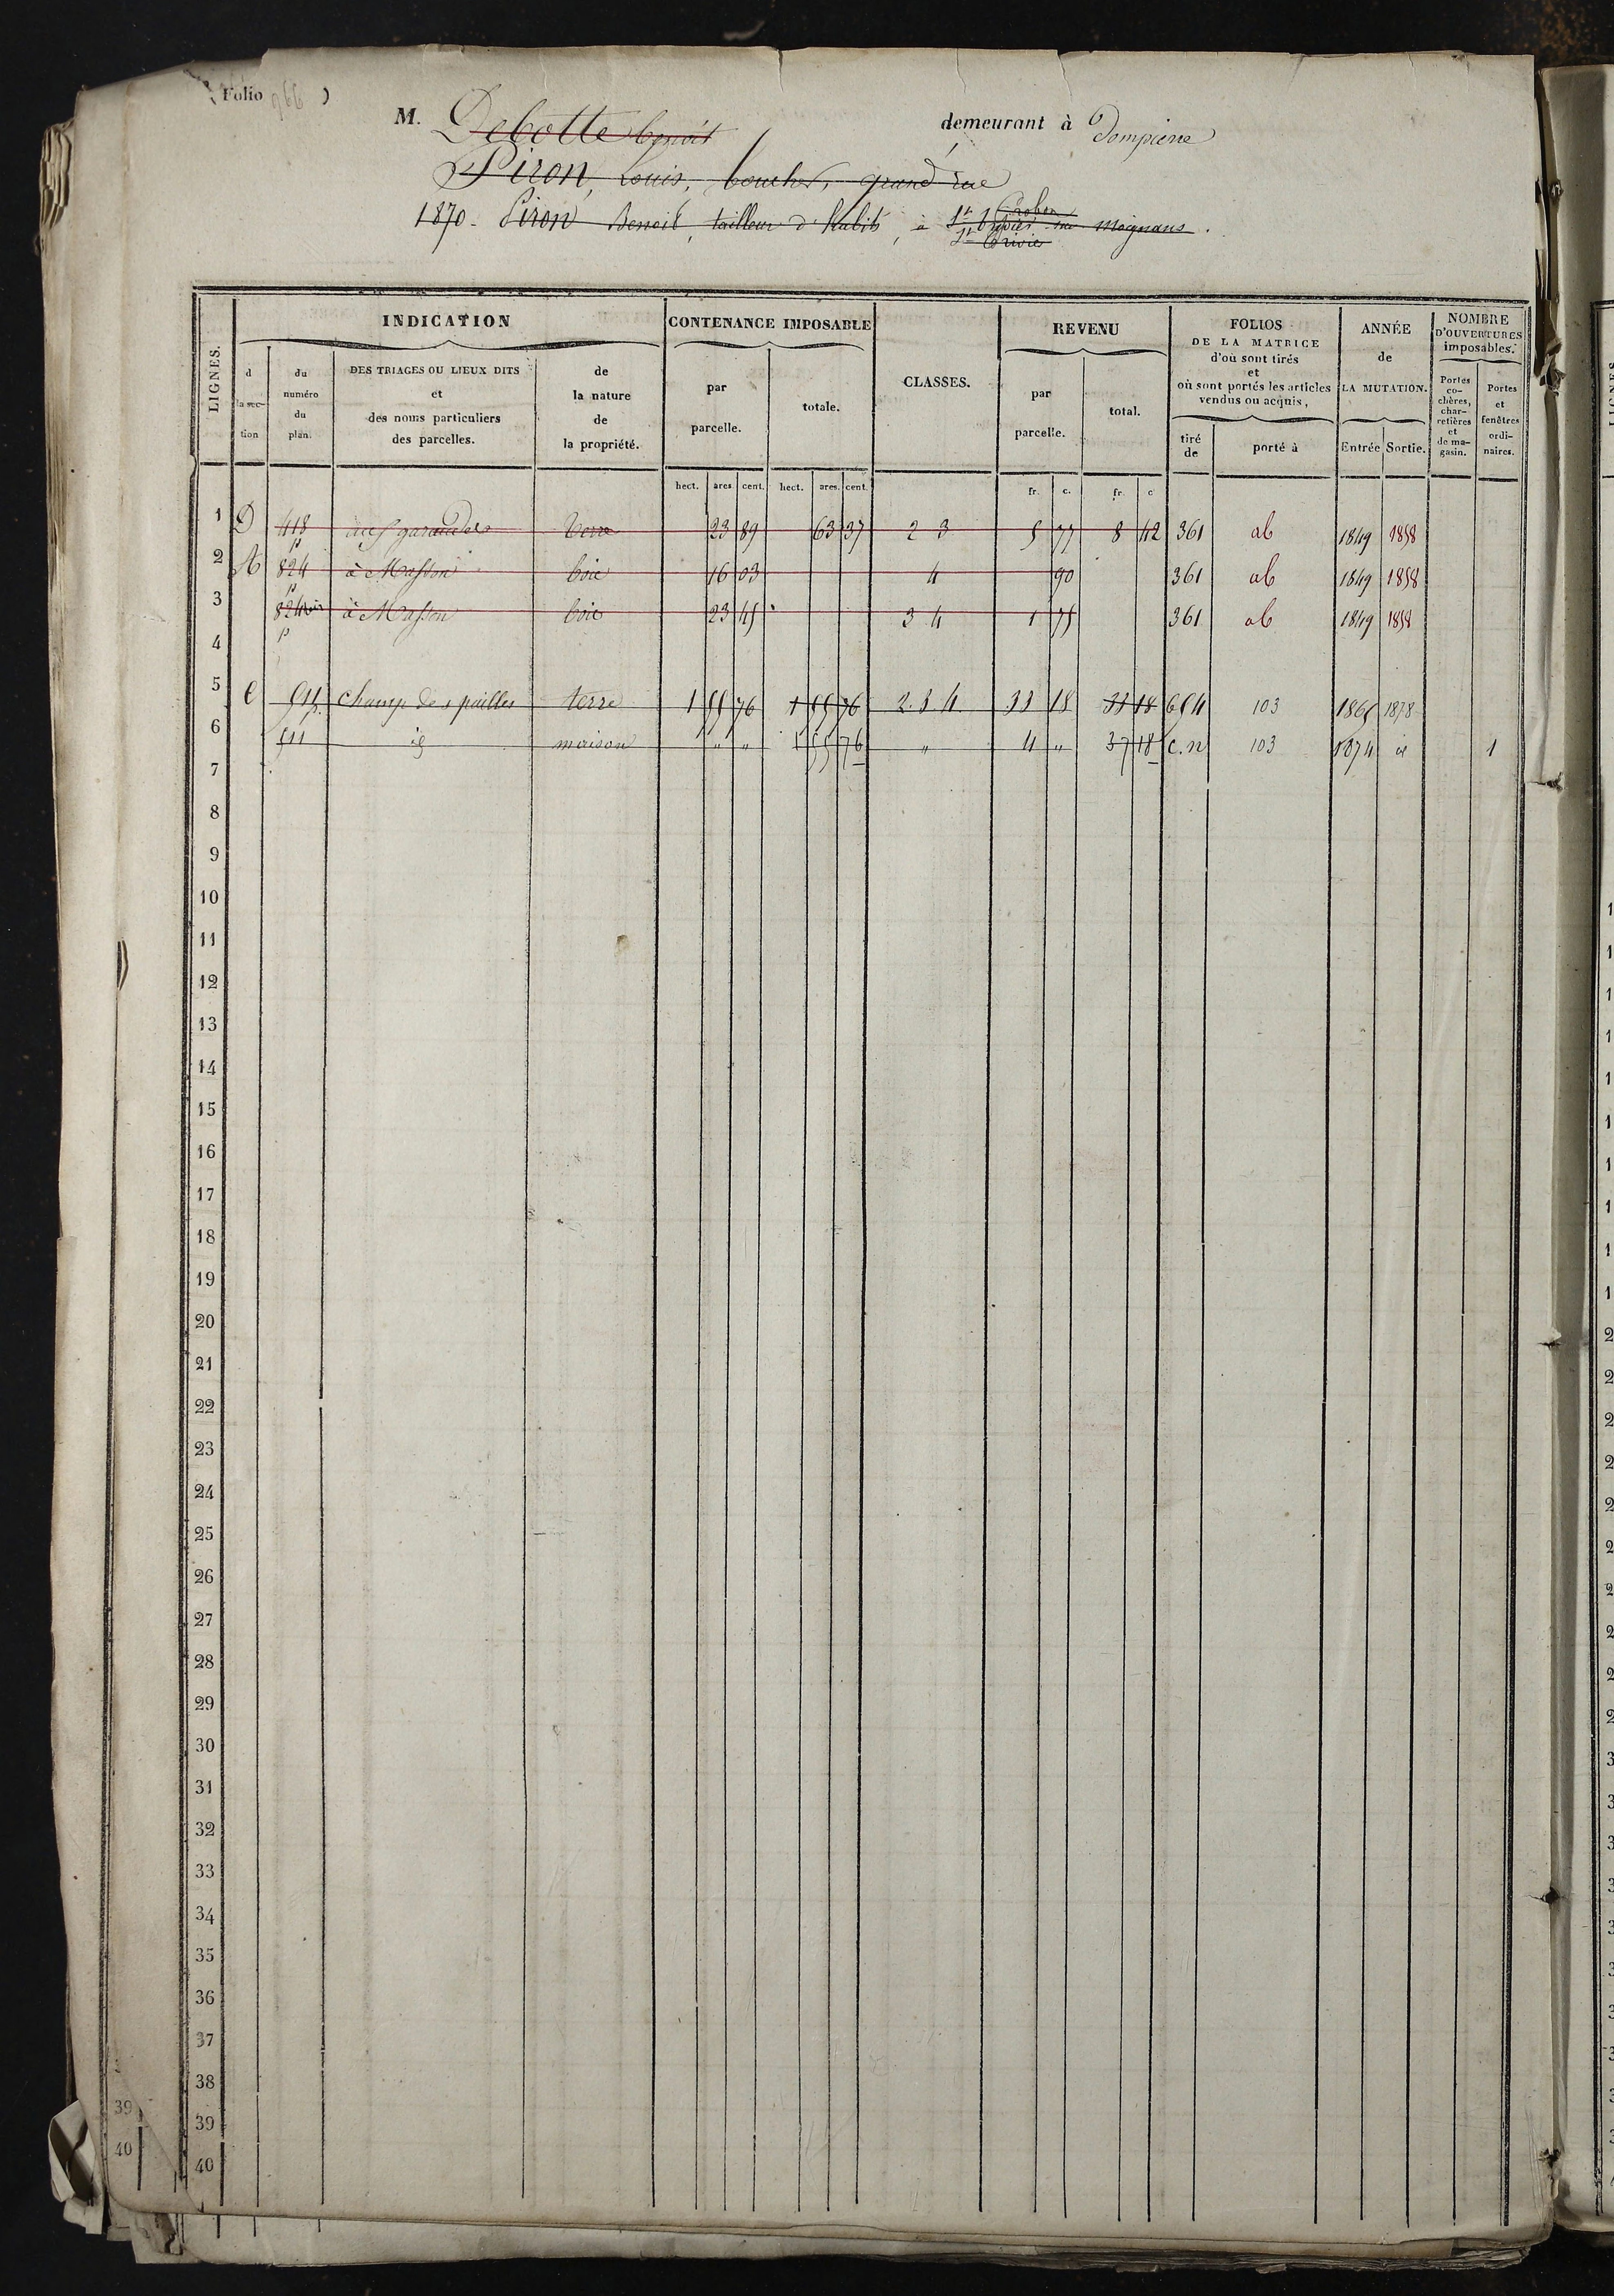 ( Folio 966 )
M. Debotte benoit demeurant à Dompierre
Piron, Louis, boucher, grand'rue
1870 - Piron Benoit, tailleur d'habits, à St Trivier sur moignans.
St Trivier
LIGNES.
INDICATION
d la section
du numéro du plan.
DES TRIAGES OU LIEUX DITS et des noms particuliers des parcelles.
de la nature de la propriété.
CONTENANCE IMPOSABLE
par parcelle.
totale.
CLASSES.
REVENU
par parcelle.
total.
FOLIOS DE LA MATRICE d'où sont tirés et où sont portés les articles vendus ou acquis,
tiré de
porté à
ANNÉE de LA MUTATION.
Entrée
Sortie.
NOMBRE D'OUVERTURES imposables.
Portes cochères, charretières et de magasin.
Portes et fenêtres ordinaires.
hect. ares cent. hect. ares. cent. fr. c. fr. c
1 D 418 p terre 23 89 63 37 2 3 5 77 8 42 361 ab 1849 1858
2 A 824 p à Masson bois 16 03 4 90 361 ab 1849 1858
3 824 bis p à Masson bois 23 45 3 4 1 75 361 ab 1849 1858
4
5 C 511 champ des pailles terre 1 55 76 1 55 76 2. 3 4 33 18 33 18 654 103 1865 1878
6 511 id maison " " 1 55 76 " 4 " 37 18 C. n 103 1874 id 1
7
8
9
10
11
12
13
14
15
16
17
18
19
20
21
22
23
24
25
26
27
28
29
30
31
32
33
34
35
36
37
38
39
40
39
40